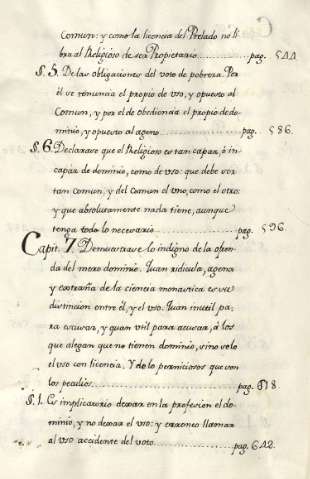 comun: y como la licencia del Prelado no li
bra al Religioso de ser Propietario........... pag. 544.
§. 5. De las obligaciones del voto de pobreza. Por
él se renuncia el propio de uso, y opuesto al
Comun, y por el de obediencia el propio de do-
minio, y opuesto al ageno.................. pag. 586.
§. 6. Declarase que el Religioso es tan capaz, ó in-
capaz de dominio, como de uso: que debe ser
tan comun, y del Comun el uno, como el otro:
y que absolutamente nada tiene, aunque
tenga todo lo necesario................ pag. 596.
Capit. 7. Demuestrase lo indigno de la ofen-
da del mero dominio. Quan ridicula, agena
y extraña de la ciencia monastica es su
distincion entre él, y el uso. Quan inutil pa-
ra excusar, y quan util para acusar, á los
que alegan que no tienen dominio, sino solo
el uso con licencia. Y de lo perniciosos que son
los peculios........................... pag. 618.
§. 1. Es implicatorio dexar en la profesion el do-
minio, y no dexar el uso: y erroneo llamar
al uso accidente del voto................ pag. 642.